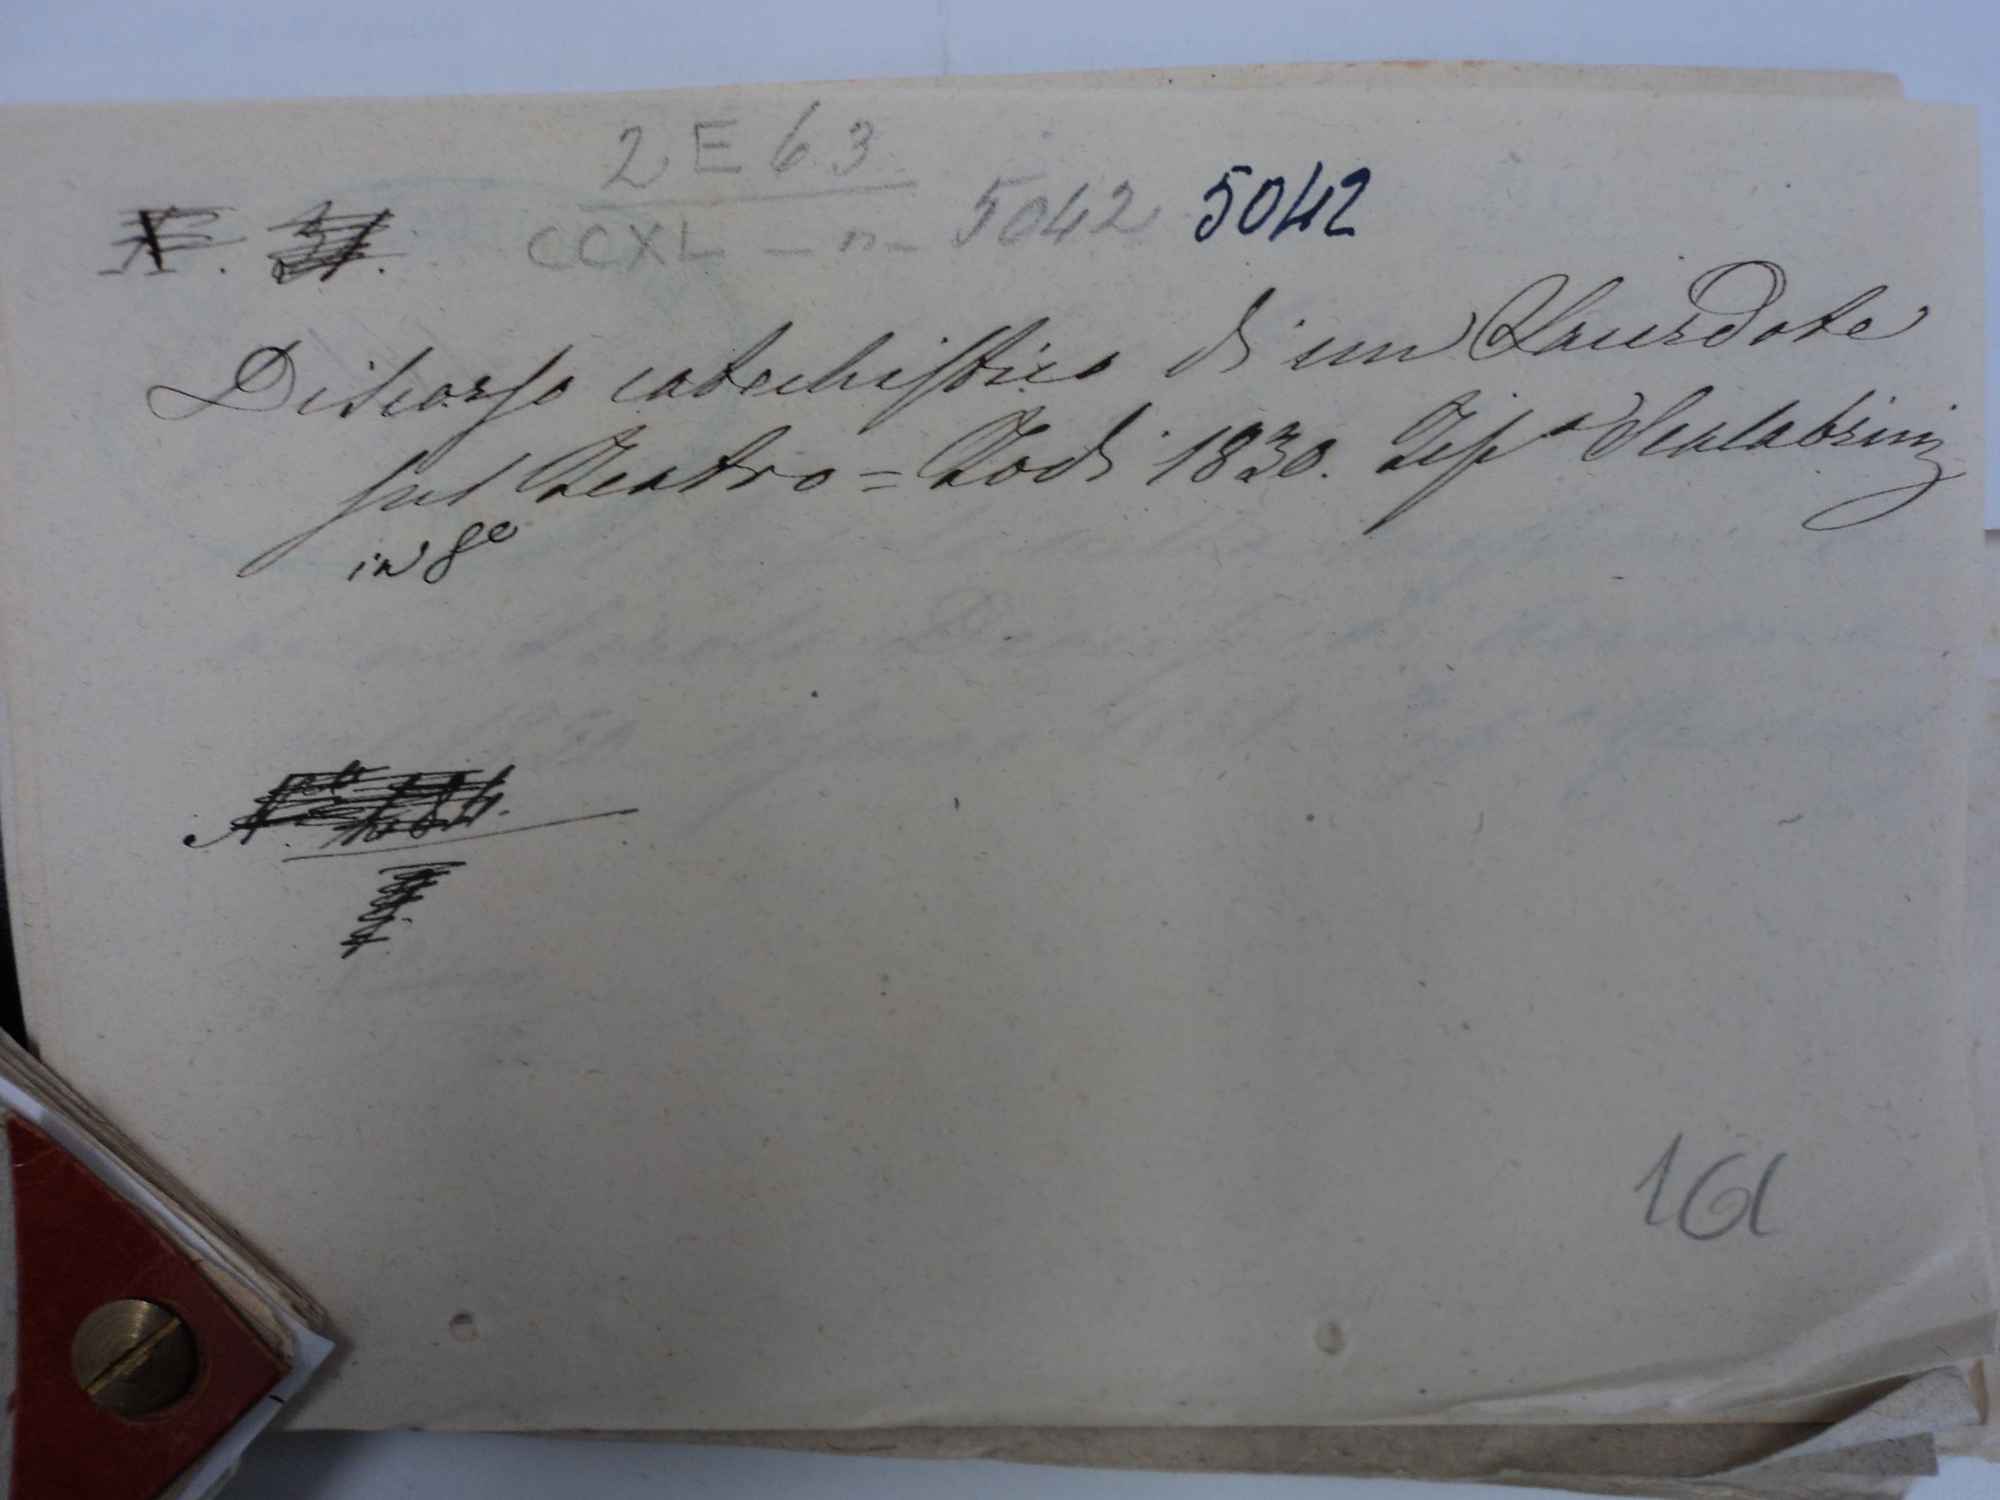 2 E 63
CCXL - n - 5042 5042
Discorso catechistico di un Sacerdote
sul Teatro = Todi 1830. Tip.ª Scalabrini
in 8º
161